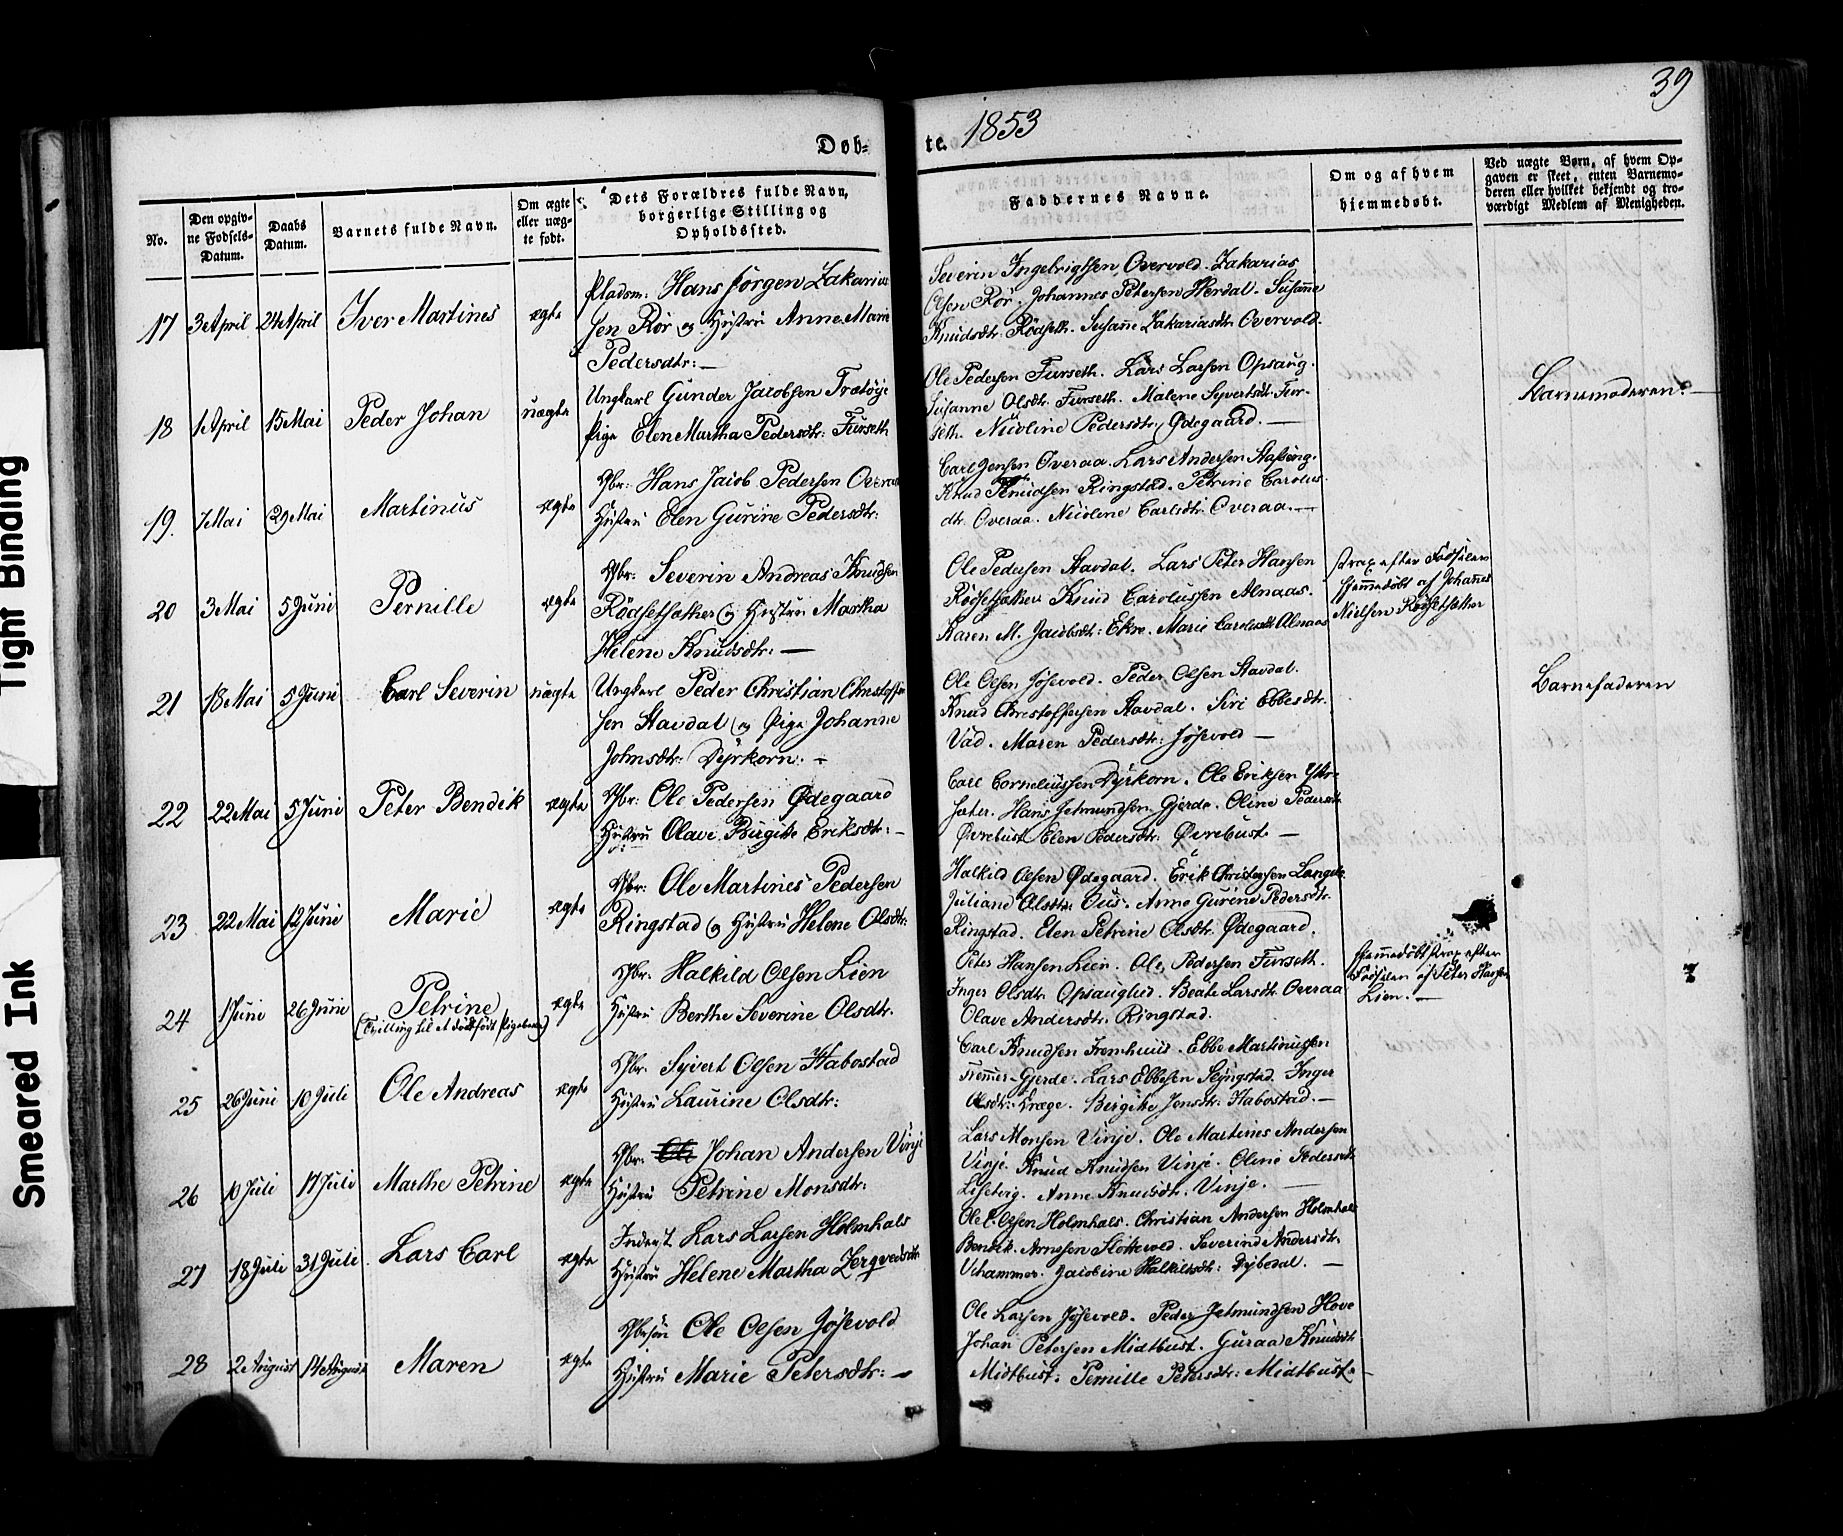 39
1853
Døb-
te.
No.
Den opgiv-
ne Fødsels-
Datum.
Daabs
Datum.
Barnets fulde Navn.
Om ægte
eller uæg-
te født.
Dets Forældres fulde Navn,
borgerlige Stilling og
Opholdssted.
Faddernes Navne.
Om og af hvem
hjemmedøbt.
Ved uægte Børn, af hvem Op-
gaven er skeet, enten Barnemo-
deren eller hvilket bekjendt og tro-
værdigt Medlem af Menigheden.
17 3 April 24 April Iver Martines ægte
Pladsm: Hans Jørgen Zakarias
sen Rør og Hustru Anne Marie
Pedersdtr:
Severin Ingebrigtsen Overvold. Zakarias
Olsen Rør. Johannes Petersen Herdal. Susanne
Knudsdtr Rødseth. Susane Zakariasdtr Overvold.
18 1 April 15 Mai Peder Johan uægte
Ungkarl Gunder Jacobsen
Pige Elen Martha Pedersdtr: Furseth
Ole Pedersen Furseth. Lars Larsen Opsaug.
Susanne Olsdtr. Furseth. Malene Syvertsdtr. Fur-
seth. Nicoline Pedersdtr, Ødegaard.
Barnemoderen.
19. 7 Mai 29 Mai Martinus ægte
Gbr: Hans Jacob Pedersen Overaa
Hustru Elen Gurine Pedersdtr:
Carl Jensen Overaa. Lars Andersen
Knud Knudsen Ringstad. Petrine Carolus-
dtr. Overaa. Nicoline Carlsdtr: Overaa.
20 3 Mai 5 Juni Pernille ægte
Gbr: Severin Andreas Knudsen
Rødsetsæther og Hustru Martha
Helene Knudsdtr:
Ole Pedersen Stavdal. Lars Peter Hansen
Rødsetsæther Knud Carolussen Alnaas.
Karen M. Jacobsdtr: Ekre. Marie Carolusdtr Alnaas
strax efter Fødselen
hjemmedøbt af Johannes
Nielsen Rødsetsæther
21 18 Mai 5 Juni Carl Severin uægte
Ungkarl Peder Christian Christoffer
sen Stavdal og Pige Johanne
Johnsdtr: Dyrkorn.
Ole Olsen Jøsevold. Peder Olsen Stavdal.
Knud Christoffersen Stavdal. Siri Ebbesdtr.
Vad. Maren Pedersdtr: Jøsevold
Barnefaderen
22 22 Mai 5 Juni Peter Bendik ægte
Gbr: Ole Pedersen Ødegaard
Hustru Olave Birgitte Eriksdtr:
Carl Corneliussen Dyrkorn. Ole Eriksen
sæter. Hans Jetmundsen Gjerde. Oline Pedersdtr
Øvrebust Elen Pedersdtr: Øvrebust.
23 22 Mai 12 Juni Marie ægte
Gbr: Ole Martines Pedersen
Ringstad og Hustru Helene Olsdtr:
Halkild Olsen Ødegaard. Erik Christensen
Juliane Olsdtr: Ous. Anne Gurine Pedersdtr.
Ringstad. Elen Petrine Olsdtr. Ødegaard.
24 1 Juni 26 Juni Petrine ægte
(Tvilling til et dødfødt Pigebarn)
Gbr. Halkild Olsen Lien
Hustru Berthe Severine Olsdtr.
Peter Hansen Lien. Ole Pedersen Furseth.
Inger Olsdtr. Opsauglied. Beate Larsdtr. Overaa
Olave Andersdtr. Ringstad.
hjemmedøbt strax efter
Fødselen af Peter Hansen
Lien.
25 26 Juni 10 Juli Ole Andreas ægte
Gbr. Syvert Olsen Habostad
Hustru Laurine Olsdtr:
Carl Knudsen Fremhuus. Ebbe Martinussen
Gjerde. Lars Ebbesen. Inger
Olsdtr: Kræge. Birgitte Jonsdtr: Habostad.
26 10 Juli 17 Juli Marthe Petrine ægte
Gbr. Johan Andersen Vinje
Hustru Petrine Monsdtr:
Lars Monsen Vinje. Ole Martines Andersen
Vinje. Knud Knudsen Vinje. Oline Pedersdtr
Anne Knudsdtr. Vinje.
27 18 Juli 31 Juli Lars Carl ægte
Inderst Lars Larsen Holmhals
Hustru Helene Martha
Ole L. Olsen Holmhals. Christian Andersen Holmhals
Bendik Arnesen. Severine Andersdtr:
Uhammer. Jacobine Halkildsdtr: Dybedal.
28 2 August 14 August Maren ægte
Ole Olsen Jøsevold
Hustru Marie Petersdtr:
Ole Larsen Jøsevold. Peder Jetmundsen Hove
Johan Petersen Midtbust. Guraa Knudsdtr
Midtbust. Pernille Petersdtr: Midtbust
Tight Binding
Smeared Ink